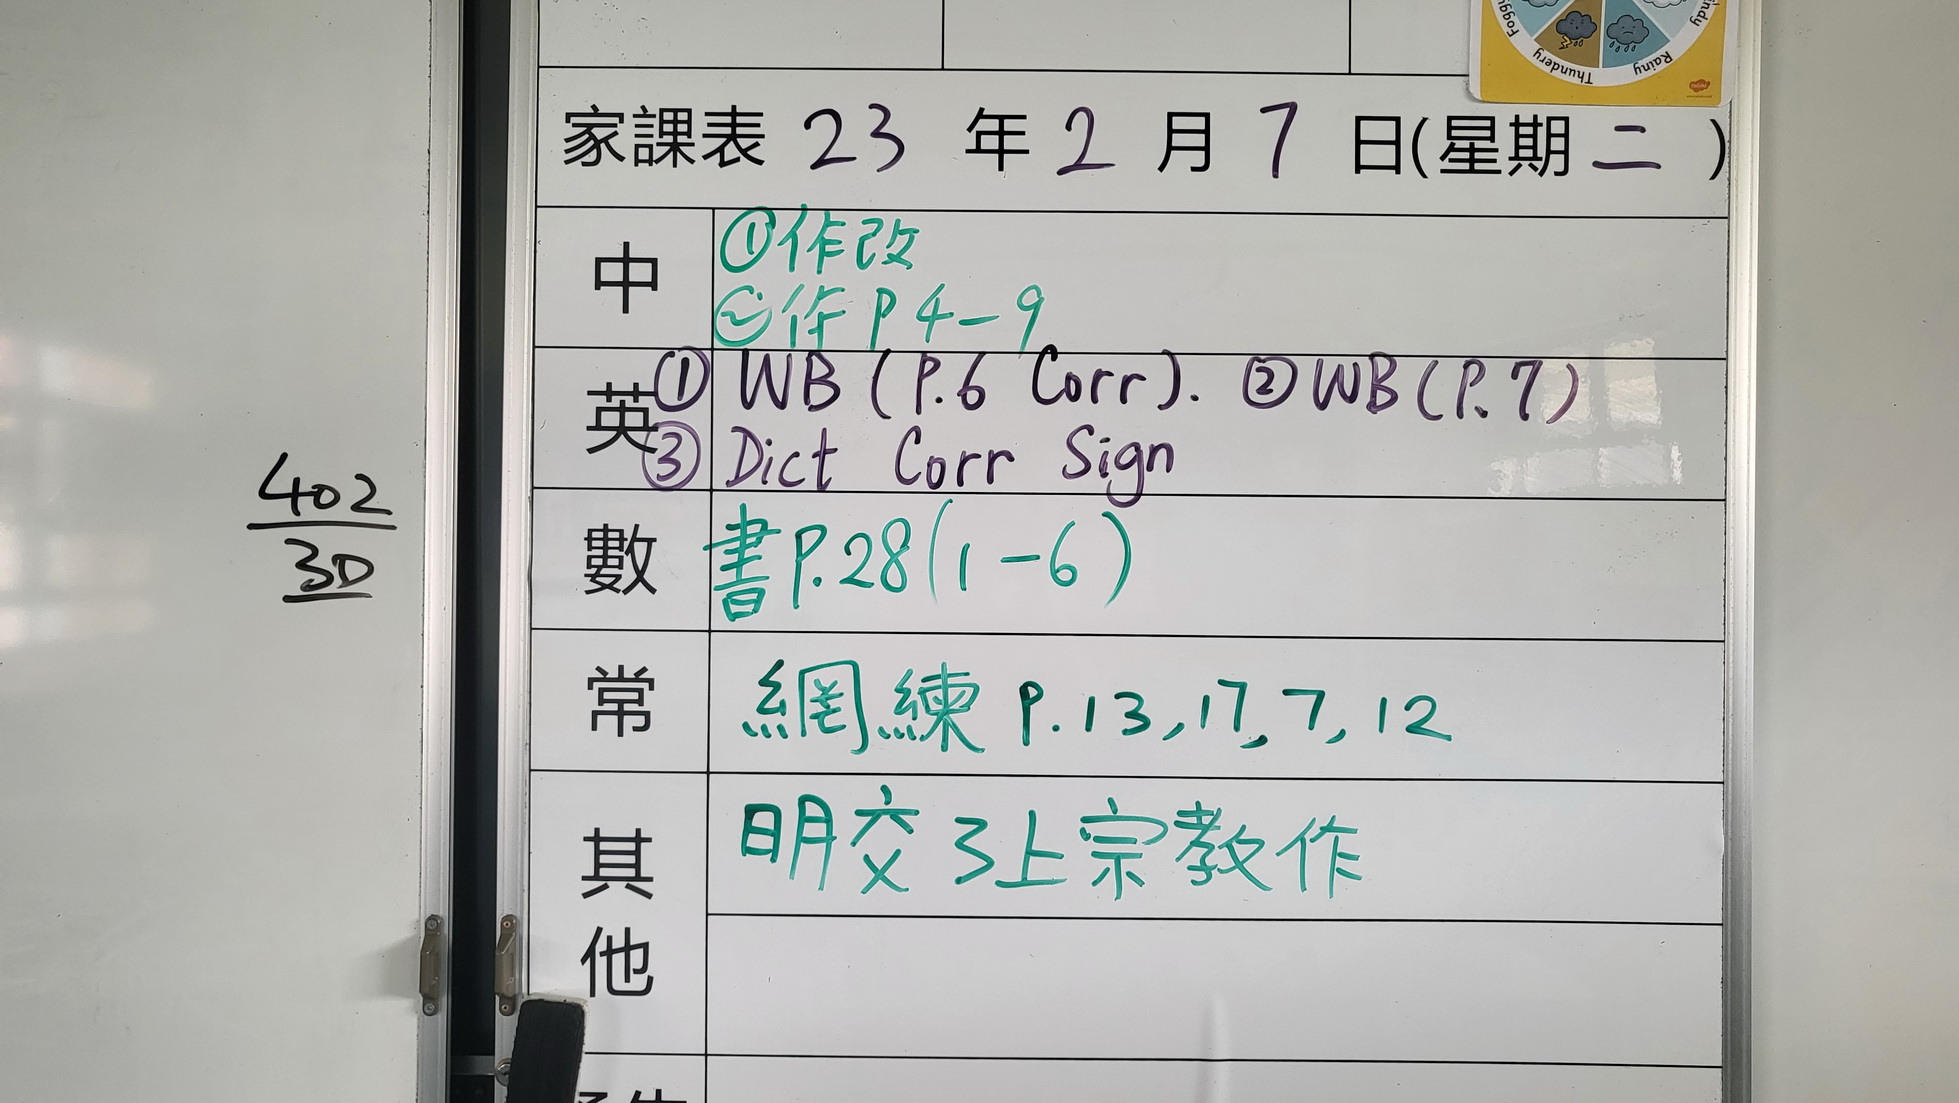 Foggy
Thundery
Rainy
家課表 23 年 2 月 7 日(星期 二 )
中
①作改
②作 P 4-9
英
① WB (P.6 Corr). ② WB (P.7)
③ Dict Corr Sign
402
30
數
書 P.28 (1-6)
常
網練 P.13, 17, 7, 12
其他
明交 3上宗教作